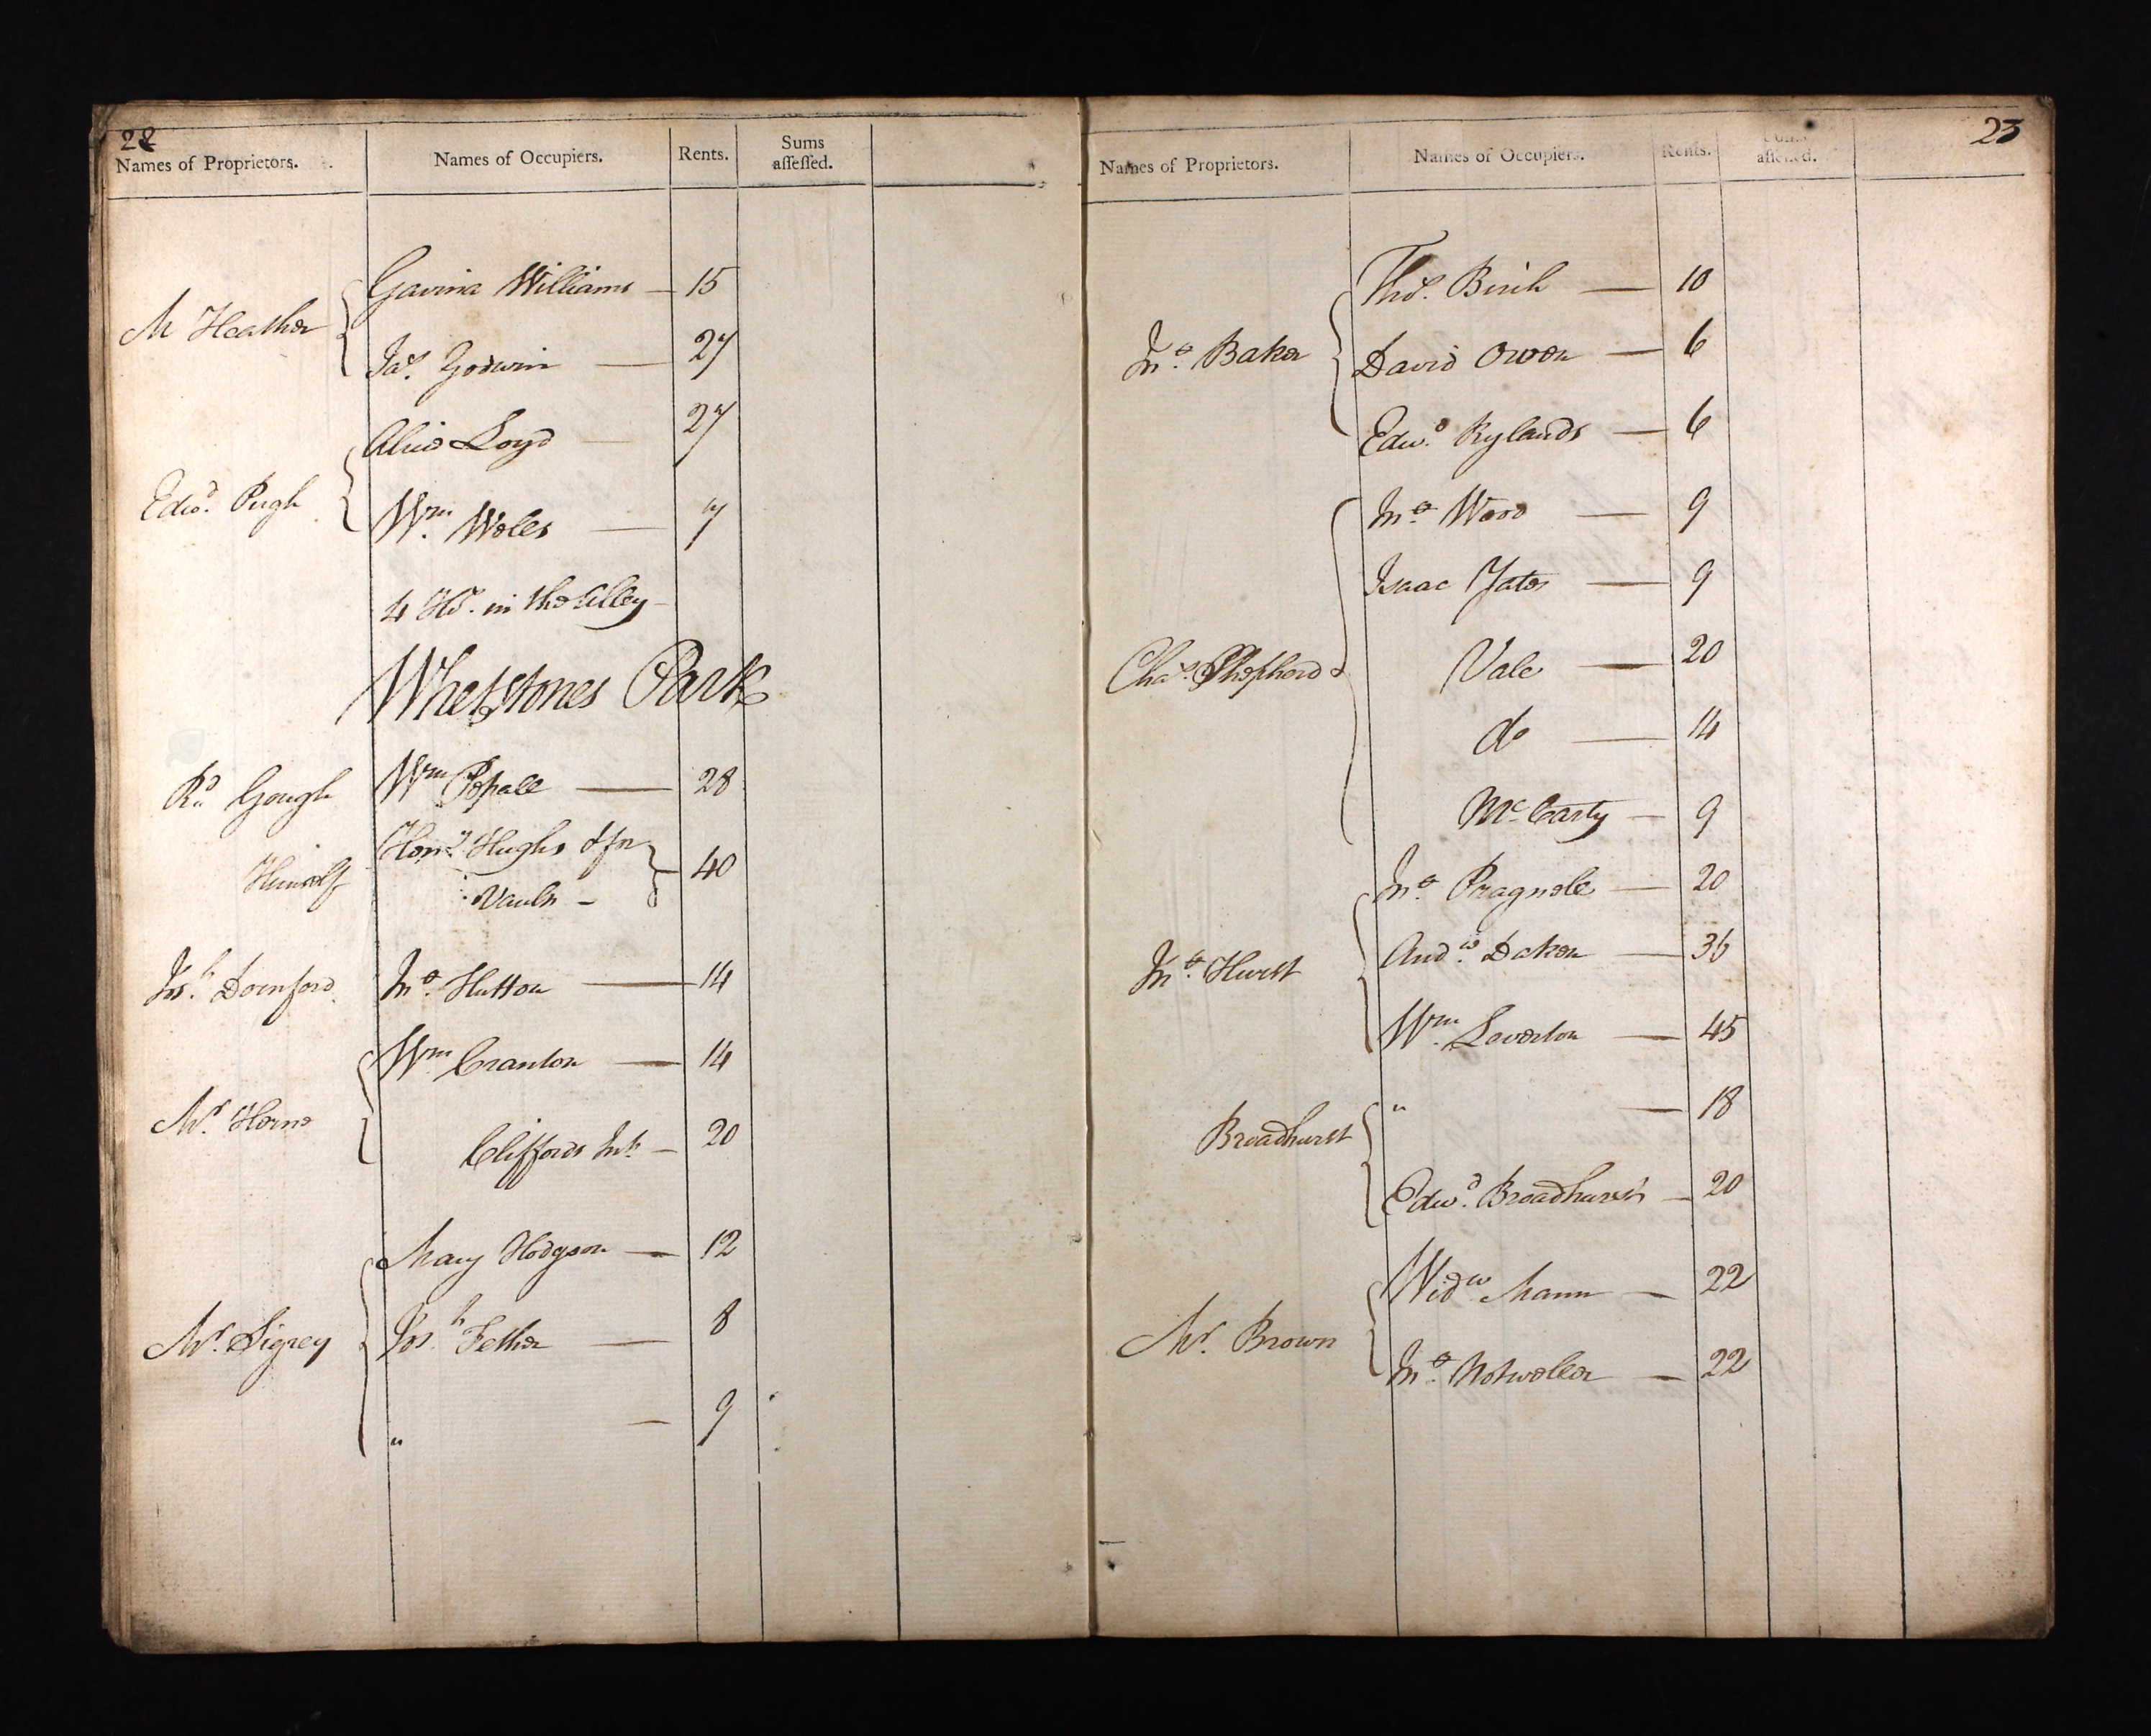 22
Names of Proprietors. Names of Occupiers. Rents. Sums assessed.
M Heather Gavina Williams — 15
Jas. Godwin — 27
Edwd. Pugh Alice Loyd — 27
Wm. Woles — 7
4 Hos. in the Alley —
Whetstones Park
Rd. Gough Wm Popall — 28
Himself Hughs 40
Vaults —
Josh. Dornford Jno. Hutton — 14
Mr. Horne Wm Cranton — 14
Cliffords — 20
Mr. Sigrey Mary Hodgson — 12
Josh. Fether — 8
" — 9
23
Names of Proprietors. Names of Occupiers. Rents. Sums assessed.
Jno. Baker Thos. Birch — 10
David Owen — 6
Edwd. Rylands — 6
Chas. Shepherd Jno. Wood — 9
Isaac Yates — 9
Vale — 20
do — 14
McCarty — 9
Jno. Hurst Jno. Pragnele — 20
Andw. Daken — 36
Wm. Laverton — 45
Broadhurst " — 18
Edwd. Broadhurst — 20
Mr. Brown Widw Mann — 22
Jno. Notweller — 22